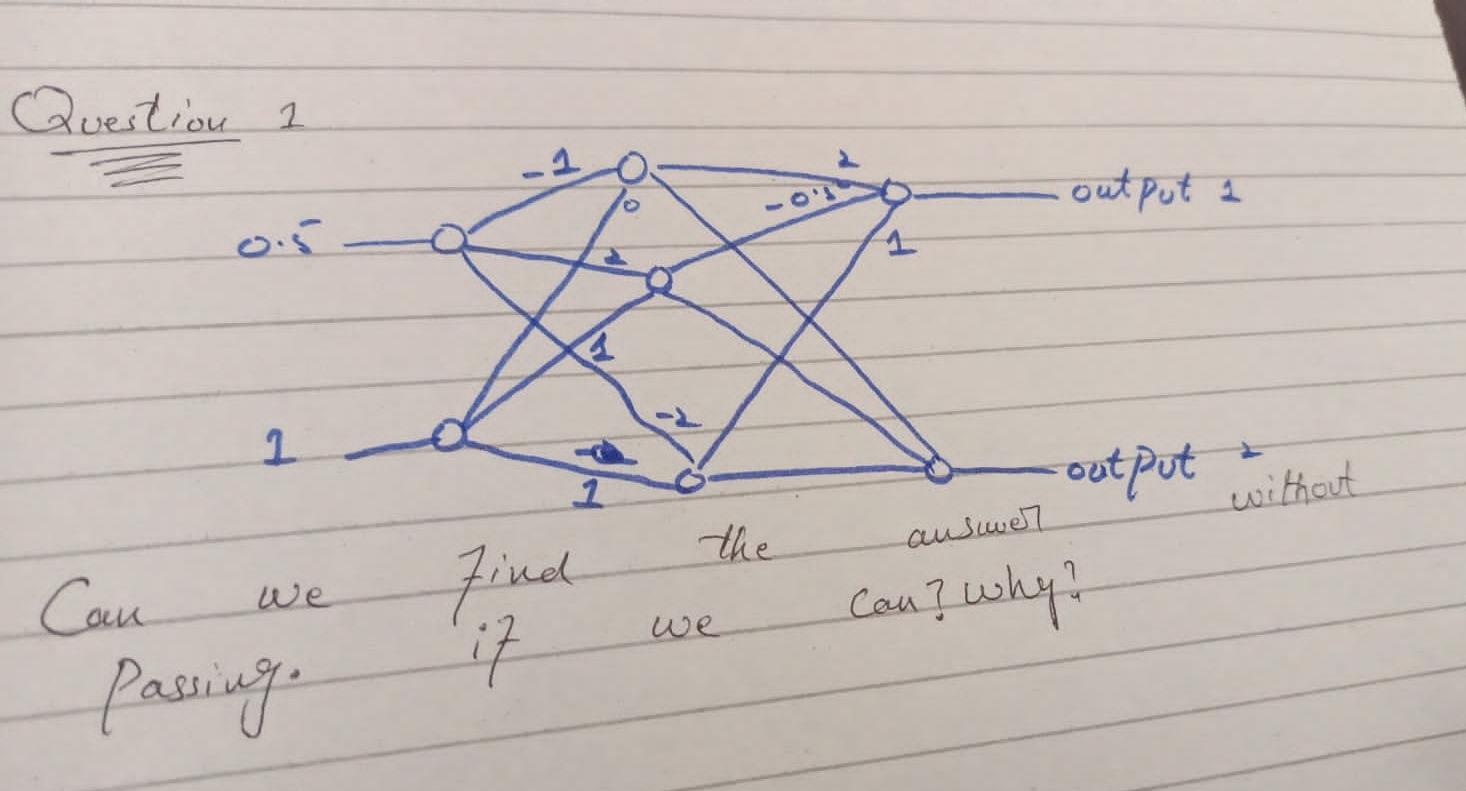 Question 1
-1
2
output 1
-0.5
0
1
0.5
2
1
-2
1
1
output 2
Can we find the answer without
Passing. if we can? why?